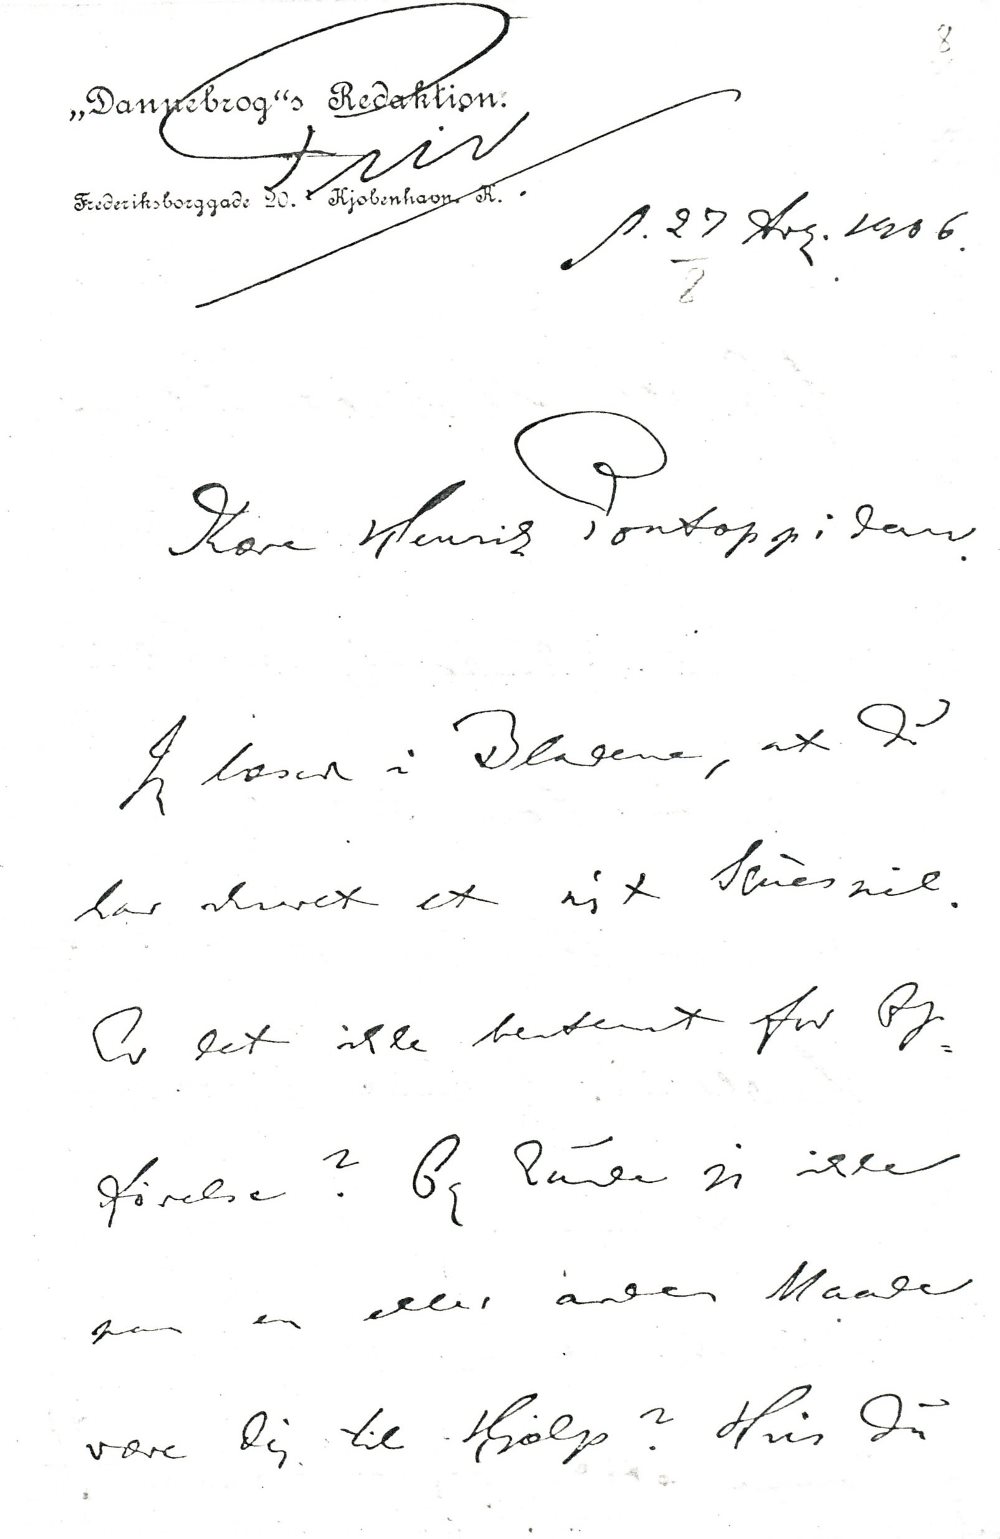 8
„Dannebrog“s Redaktion.
Priv
Frederiksborggade 20. Kjøbenhavn. K.
d. 27 Aug. 1906.
8
Kære Henrik Pontoppidan.
Jeg læser i Bladene, at Du
har skrevet et nyt Skuespil.
Er det ikke bestemt for Op=
førelse? Og kunde jeg ikke
paa en eller anden Maade
være Dig til Hjælp? Hvis Du